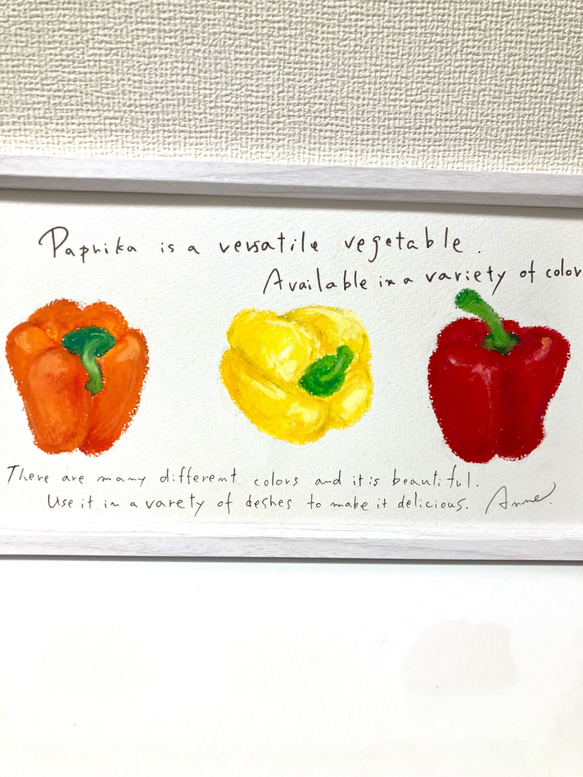 Paprika is a versatile vegetable.
Available in a variety of color
There are many different colors and it is beautiful.
Use it in a varety of deshes to make it delicious. Anne.